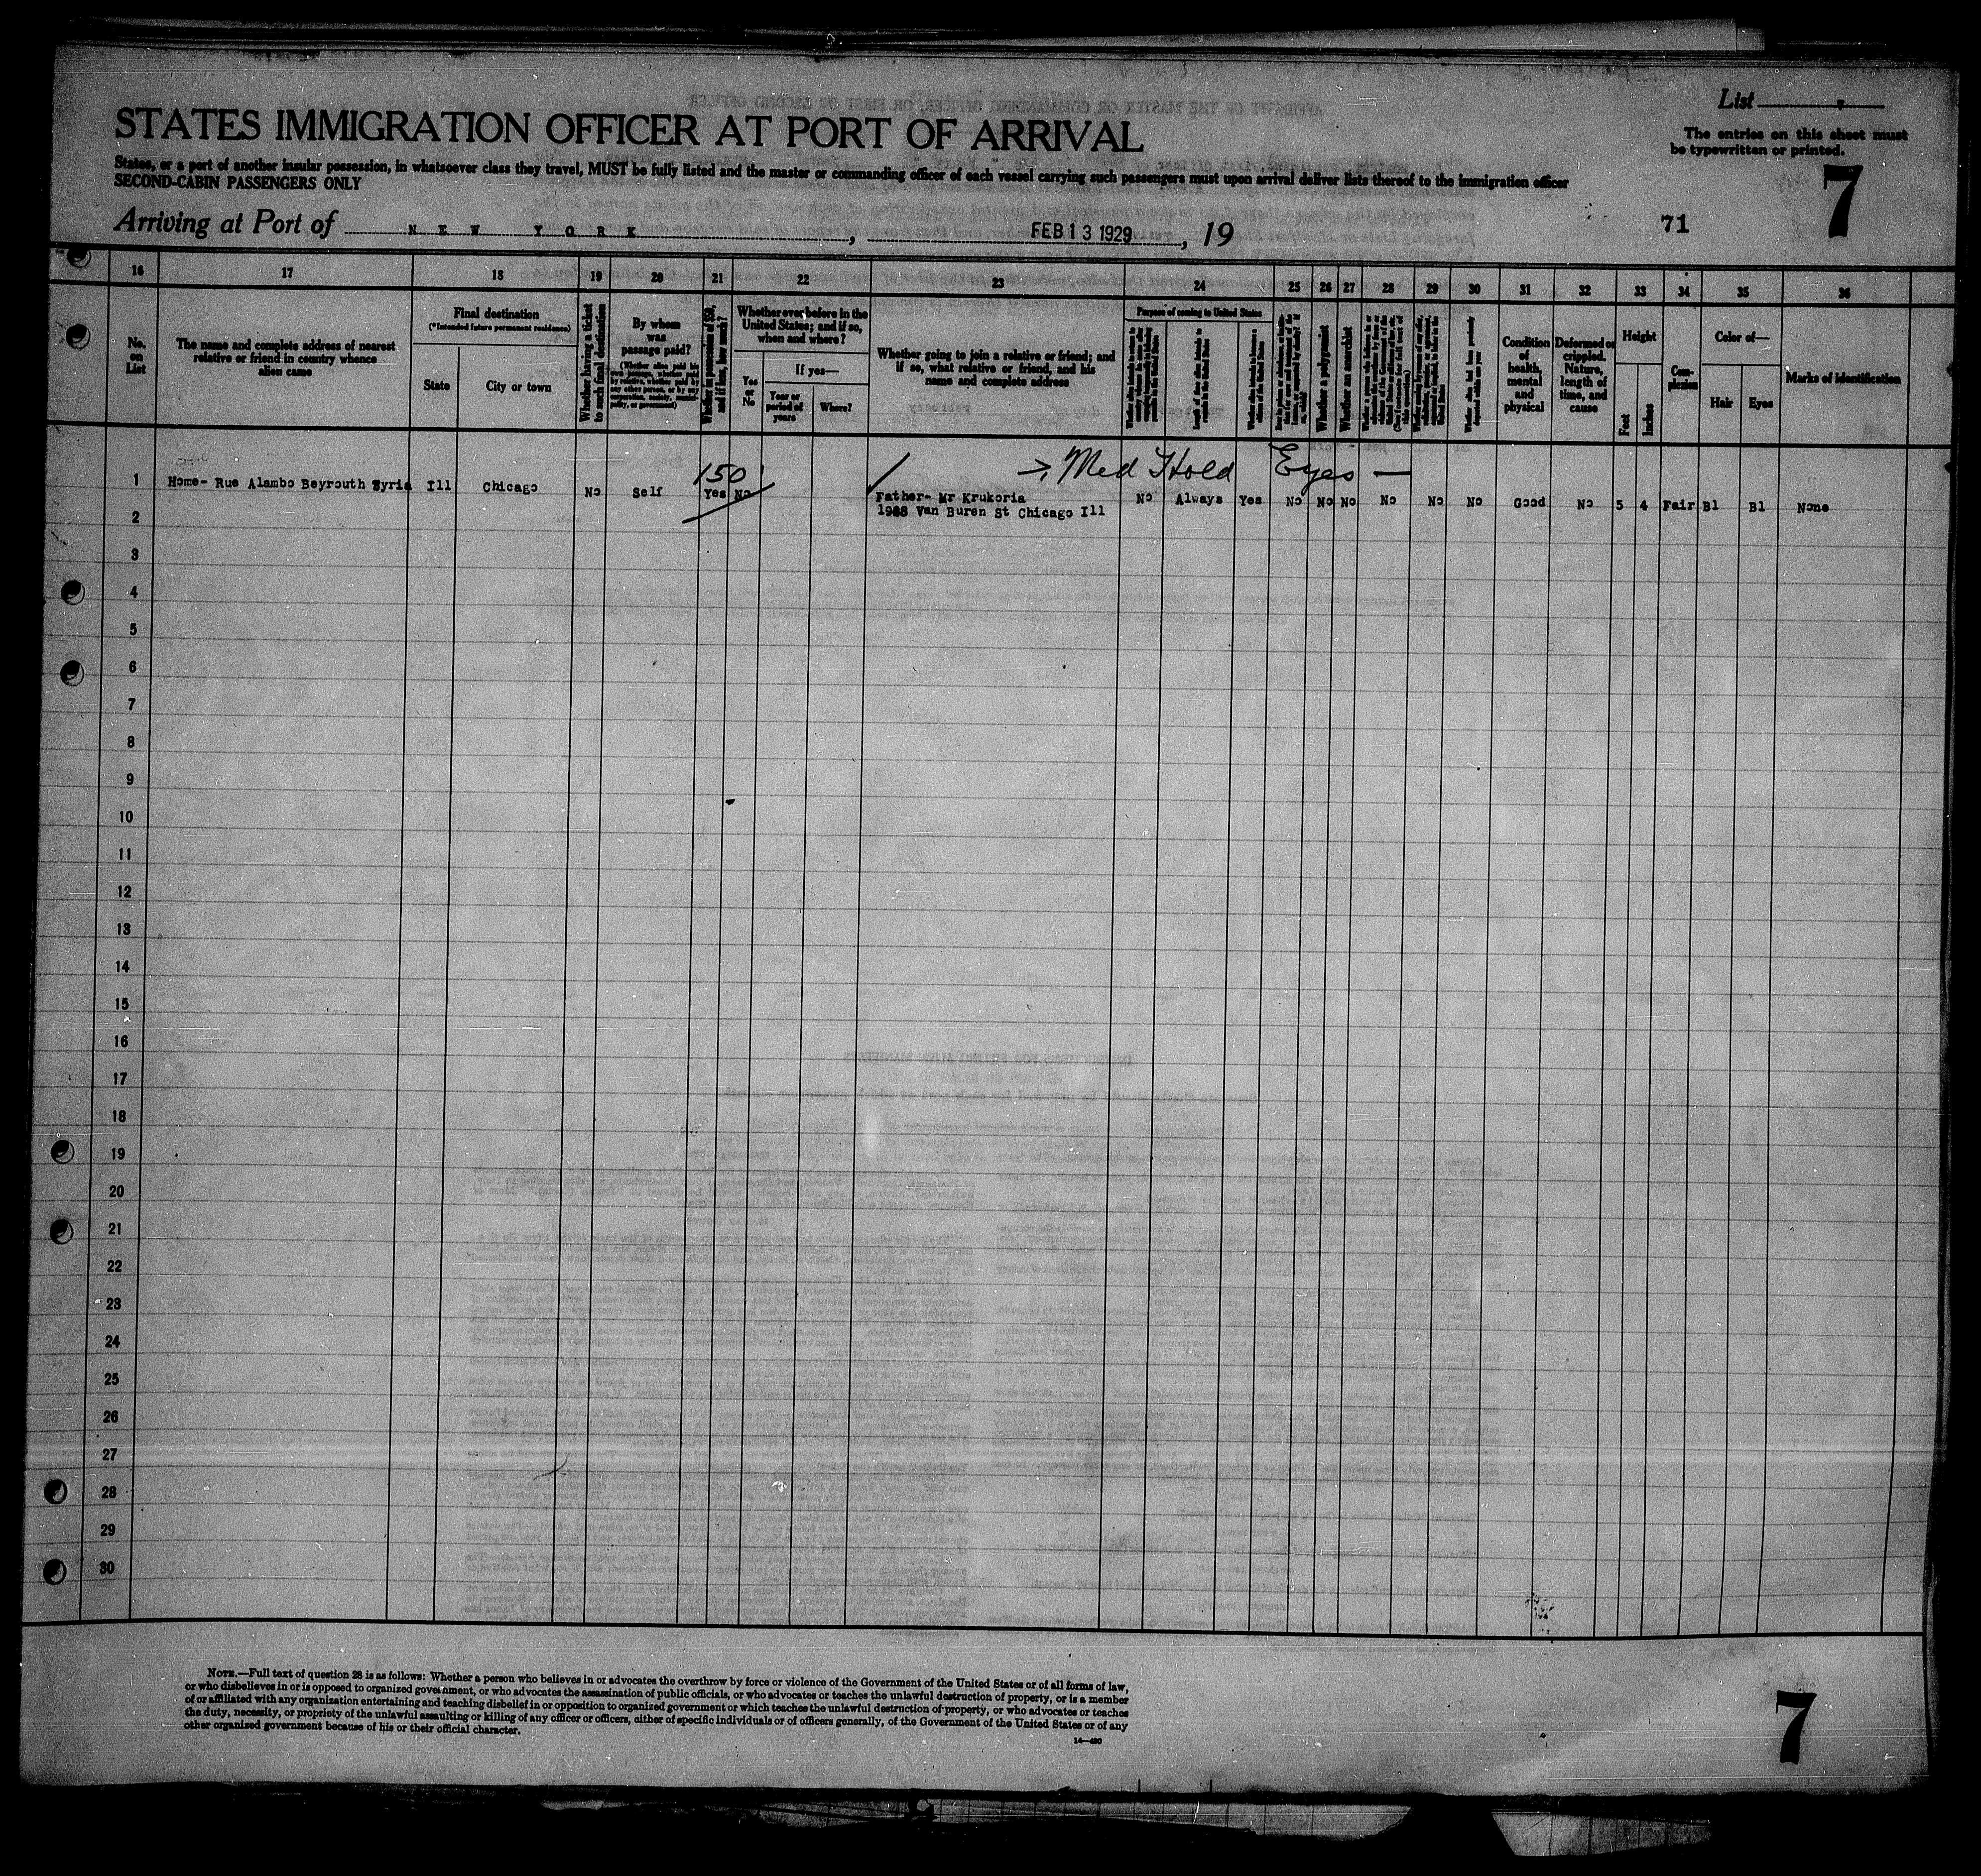 List
STATES IMMIGRATION OFFICER AT PORT OF ARRIVAL
The entries on this sheet must
be typewritten or printed.
States, or a port of another insular possession, in whatsoever class they travel, MUST be fully listed and the master or commanding officer of each vessel carrying such passengers must upon arrival deliver lists thereof to the immigration officer
SECOND-CABIN PASSENGERS ONLY
7
Arriving at Port of NEW YORK, FEB 13 1929, 19
71
16 17 18 19 20 21 22 23 24 25 26 27 28 29 30 31 32 33 34 35 36
No. on List
The name and complete address of nearest relative or friend in country whence alien came
Final destination
(*Intended future permanent residence)
State
City or town
Whether having a ticket to such final destination
By whom was passage paid?
(Whether alien paid his own passage, whether paid by relative, whether paid by any other person, or by any corporation, society, municipality, or government)
Whether in possession of $50, and if less, how much?
Whether ever before in the United States; and if so, when and where?
Yes or No
If yes—
Year or period of years
Where?
Whether going to join a relative or friend; and if so, what relative or friend, and his name and complete address
Purpose of coming to United States
Length of time alien intends to remain in the United States
Whether a polygamist
Whether an anarchist
Condition of health, mental and physical
Deformed or crippled. Nature, length of time, and cause
Height
Feet
Inches
Complexion
Color of—
Hair
Eyes
Marks of identification
150
→ Med Hold Eyes —
1 Home- Rue Alambo Beyrouth Syria Ill Chicago No Self Yes No Father- Mr Krukoria No Always Yes No No No No No No Good No 5 4 Fair Bl Bl None
1988 Van Buren St Chicago Ill
2
3
4
5
6
7
8
9
10
11
12
13
14
15
16
17
18
19
20
21
22
23
24
25
26
27
28
29
30
NOTE.—Full text of question 28 is as follows: Whether a person who believes in or advocates the overthrow by force or violence of the Government of the United States or of all forms of law,
or who disbelieves in or is opposed to organized government, or who advocates the assassination of public officials, or who advocates or teaches the unlawful destruction of property, or is a member
of or affiliated with any organization entertaining and teaching disbelief in or opposition to organized government or which teaches the unlawful destruction of property, or who advocates or teaches
the duty, necessity, or propriety of the unlawful assaulting or killing of any officer or officers, either of specific individuals or of officers generally, of the Government of the United States or of any
other organized government because of his or their official character.
14—430
7